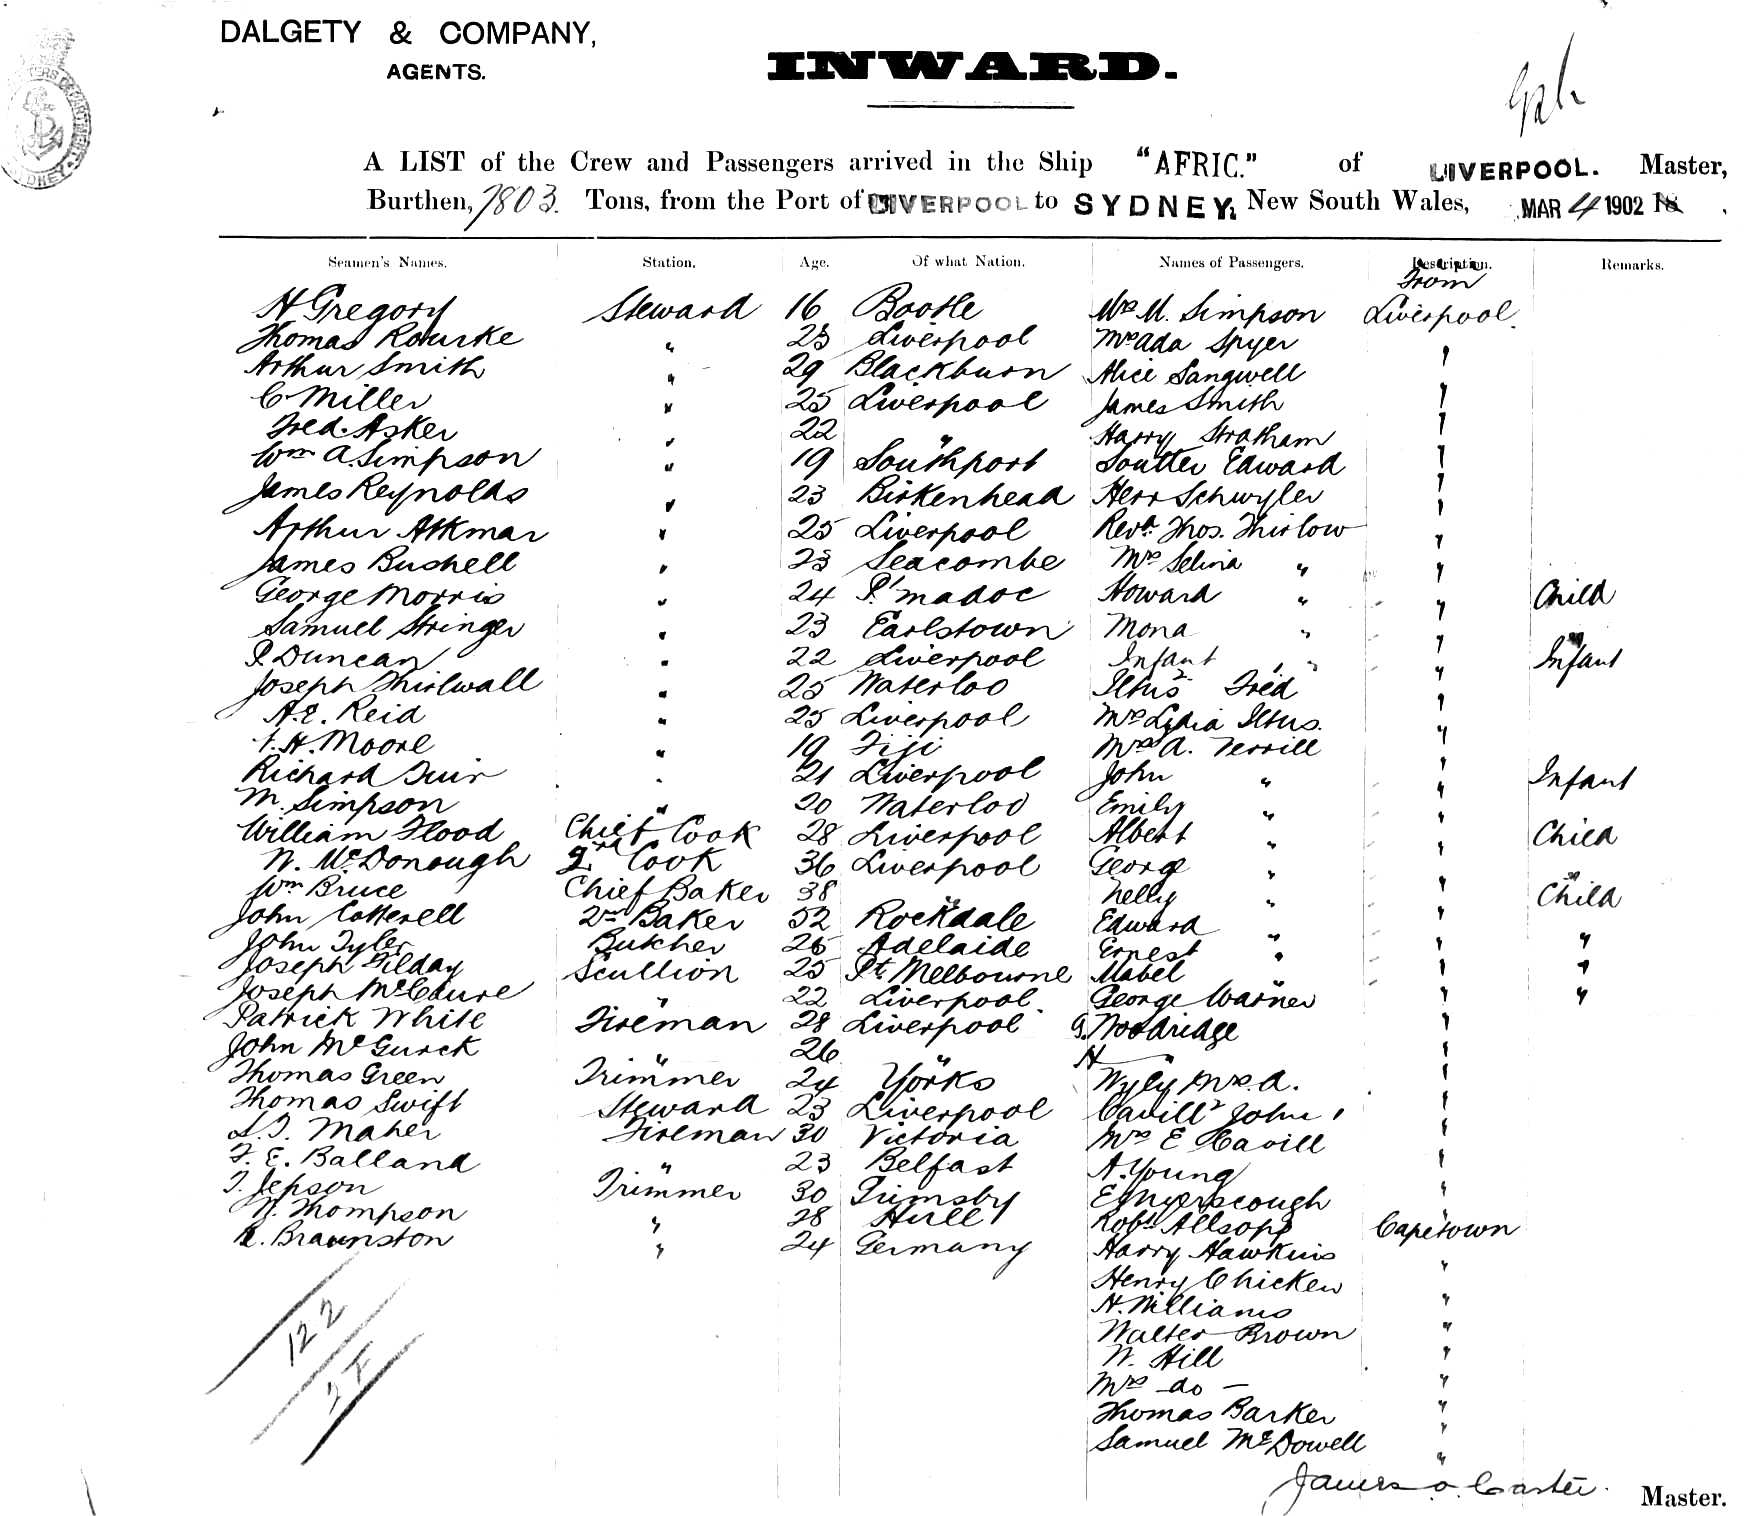 DALGETY & COMPANY,
AGENTS.
INWARD.
A LIST of the Crew and Passengers arrived in the Ship "AFRIC." of LIVERPOOL. Master,
Burthen, 7803. Tons, from the Port of LIVERPOOL to SYDNEY, New South Wales, MAR 4 1902 18
Seamen's Names. Station. Age. Of what Nation. Names of Passengers. Description. Remarks.
From
H Gregory Steward 16 Bootle Mrs M. Simpson Liverpool.
Thomas Rourke " 23 Liverpool Mrs Ada Spyer "
Arthur Smith " 29 Blackburn Alice Sangwell "
C Miller " 25 Liverpool James Smith "
Fred. Asker " 22 " Harry Stratham "
Wm A. Simpson " 19 Southport Soutter Edward "
James Reynolds " 23 Birkenhead Herr Schwyler "
Arthur Atkmar " 25 Liverpool Revd. Thos. Thirlow "
James Bushell " 23 Seacombe Mrs Selina " "
George Morris " 24 P.'madoc Howard " " Child
Samuel Stringer " 23 Earlstown Mona " "
P. Duncan " 22 Liverpool Infant " " Infant
Joseph Thirlwall " 25 Waterloo Iltus Fred "
A.E. Reid " 25 Liverpool Mrs Lydia Iltus. "
H. Moore " 19 Fiji Mrs A. Terrill "
Richard Tuir " 21 Liverpool John " " Infant
M. Simpson " 20 Waterloo Emily " "
William Flood Chief Cook 28 Liverpool Albert " " Child
W. McDonough 2nd Cook 36 Liverpool Georg " "
Wm Bruce Chief Baker 38 " Nelly " " Child
John Cotterell 2nd Baker 52 Rockdale Edward " "
John Tyler Butcher 26 Adelaide Ernest " " "
Joseph Gilday Scullion 25 Pt. Melbourne Mabel " " "
Joseph McClure " 22 Liverpool. George Warner " "
Patrick White Fireman 28 Liverpool G. Woodridge "
John McGurck " 26 " H "
Thomas Green Trimmer 24 Yorks Wyly Mrs. A. "
Thomas Swift Steward 23 Liverpool Cavill John "
Maher Fireman 30 Victoria Mrs E Cavill "
F. E. Balland " 23 Belfast A. Young "
T. Jepson Trimmer 30 Grimsby E Myerscough "
W. Thompson " 28 Hull Robt Allsopp Capetown
Braunston " 24 Germany Harry Hawkins "
Henry Chicken "
H. Williams "
Walter Brown "
W. Hill "
Mrs - do - "
Thomas Barker "
Samuel McDowell "
122
James Carter. Master.